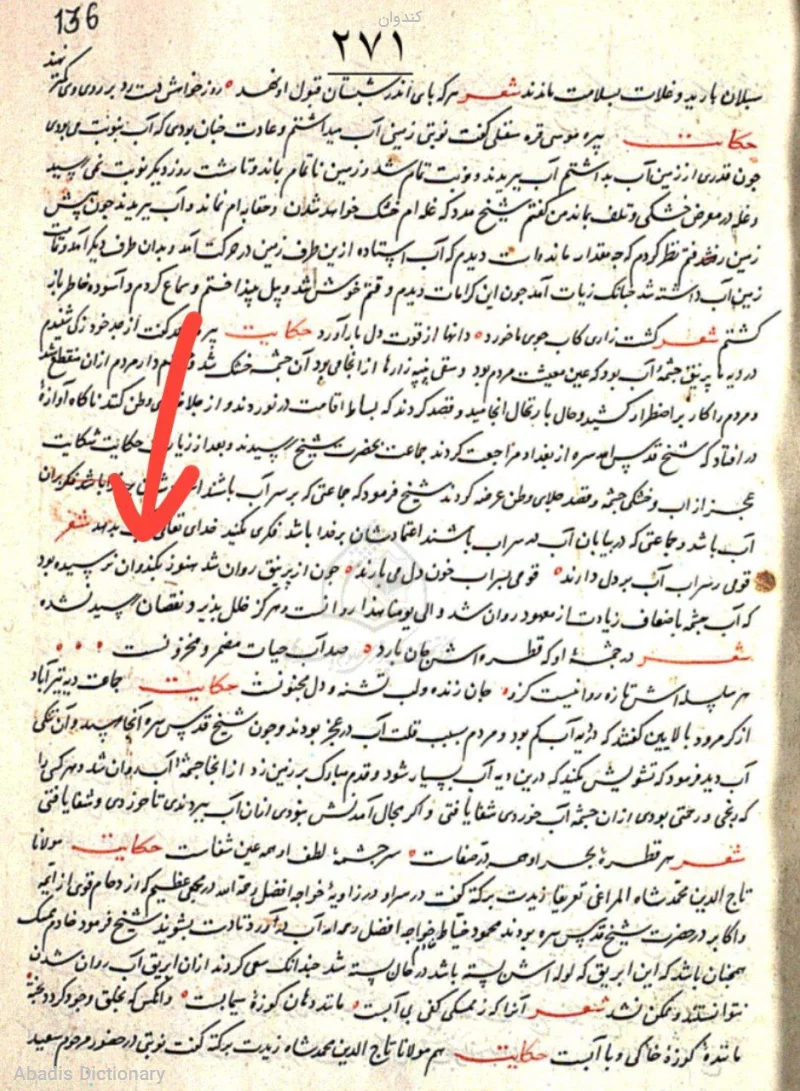 کندوان
136
۲۷۱
نهند
سیلان بارید و غلات بسلامت ماندند شعر هرکه پای اندر شبستان قبول او نهد روز خواهش دست رد بر روی وی کمتر
حکایت پیره موسی قره سفلی گفت نوبتی زمینی آب میداشتم و عادت چنان بودی که آب بنوبت می‌بودی
چون قدری از زمین آب بداشتم آب ببریدند و نوبت تمام شد و زمین ناتمام بماند و تا هشت روز دیگر نوبت نمی‌رسید
و غله در معرض خشکی و تلف بماند من گفتم شیخ مدد که غله‌ام خشک خواهد شدن و حقابه‌ام نماند و آب ببریدند چون پیش
زمین رفتم نظر کردم که چه مقدار مانده است دیدم که آب ایستاده ازین طرف زمین در حرکت آمد و بدان طرف دیگر آمد و تمامت
زمین آب داشته شد چنانک زیادت آمد چون این کرامات دیدم وقتم خوش شد و بیل بینداختم و سماع کردم و آسوده خاطر باز
گشتم شعر کشت زاری کاب جوی ما خورد دانها از قوت دل بار آرد حکایت پیره گفت از جد خود زکی شنیدم
در دیه پرنیق چشمهٔ آب بود که عین معیشت مردم بود و سقی پنبه‌زارها از آنجا می‌بود آن چشمه خشک شد و مردم ازان منقطع شد
و مردم را کار بر اضطرار کشید و حال بارتحال انجامید و قصد کردند که بساط اقامت در نوردند و از علا وطن کنند ناکاه آوازهٔ
در افتاد که شیخ قدس الله سره از بغداد مراجعت کردند جماعت بحضرت شیخ رسیدند و بعد از زیارت حکایت شکایت
عجز از اب و خشکی چشمه و قصد جلای وطن عرضه کردند شیخ فرمود که جماعتی که بر سر آب باشند
آب باشد و جماعتی که در بیابان آب در سراب باشند اعتمادشان بر خدا باشد فکری مکنید خدای تعالی بدهد شعر
قومی بر سر آب آب بر دل دارند قومی بسراب خون دل می‌بارند چون از پرنیق روان شد هنوز بکندوان نرسیده بود
که آب چشمه باضعاف زیادت از معهود روان شد و الی یومنا هذا روانست و هرگز خلل پذیر و نقصان رسیده نشده
شعر در چشمهٔ او که قطره‌اش جان بارد صد آب حیات مضمر و مخزونست
هر سلسله‌اش تازه روانیست کزو جان زنده و لب تشنه و دل مجنونست حکایت جماعت دیه تبرآباد
از کرمرود بالایین گفتند که در دیه آب کم بود و مردم بسبب قلت آب در عجز بودند و چون شیخ قدس سره آنجا رسید و آن تنگی
آب دید فرمود که تشویش مکنید که درین دیه آب بسیار شود و قدم مبارک بر زمین زد از آنجا چشمهٔ آب روان شد و هر کس را
که رنجی و زحمتی بودی ازان چشمه آب خوردی شفا یافتی و اگر مجال آمدنش نبودی ازان آب ببردندی تا خوردی و شفا یافتی
شعر هر قطرهٔ بحر او همه در صفاست سرچشمهٔ لطف او همه عین شفاست حکایت مولانا
تاج الدین محمد شاه المراغی تعریفا زیدت برکته گفت در سراو در زاویهٔ خواجه افضل رحمه الله در مجمعی عظیم که از دحام قوی از ائمه
و اکابر در حضرت شیخ قدس سره بودند محمود خیاط خواجه افضل رحمه الله آب در آورد تا دست بشویند شیخ فرمود خادم ممسک
همچنان باشد که این ابریق که لوله‌اش بسته باشد در کمان بسته شد چندانک سعی کردند ازان ابریق آب روان شدن
نتوانستند و ممکن نشد شعر آنرا که ز ممسکی کفی بی آبست مانند دهان کوزهٔ سیمابست وانکس که بخلق وجود کردد
مانندهٔ کوزهٔ خاکی و با آبست حکایت هم مولانا تاج الدین محمد شاه زیدت برکته گفت نوبتی در حضور مرحوم سعید
Abadis Dictionary